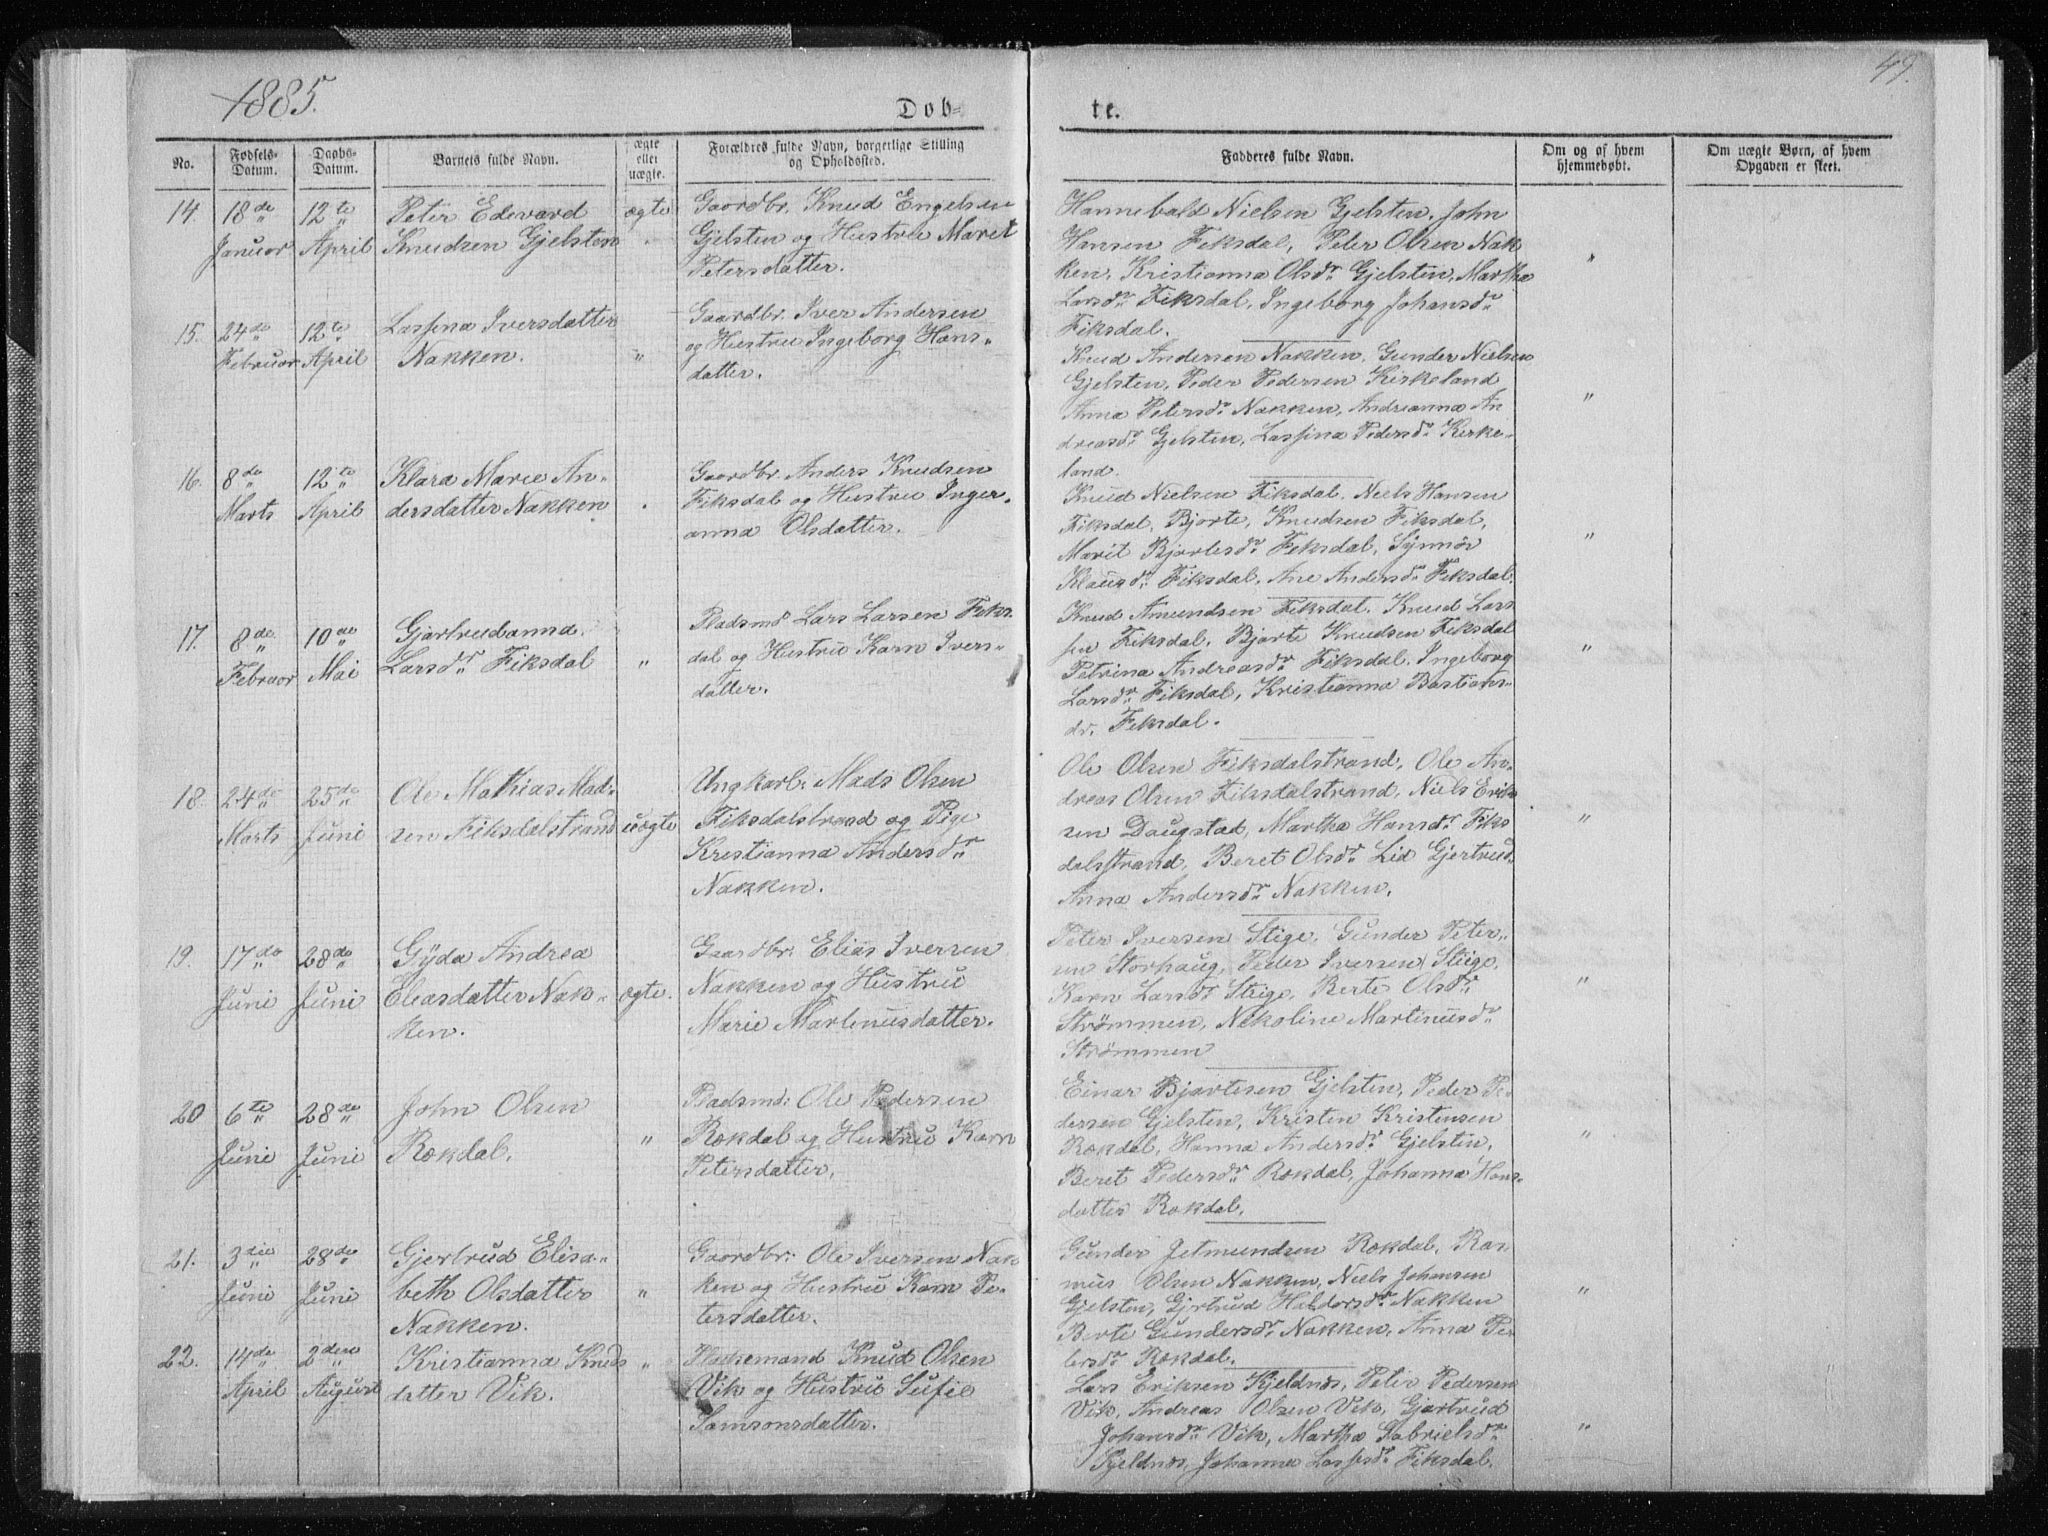 1885.
49.
Døb-
te.
No.
Fødsels-
Datum.
Daabs-
Datum.
Barnets fulde Navn.
ægte
eller
uægte.
Forældres fulde Navn, borgerlige Stilling
og Opholdssted.
Faddernes fulde Navn.
Om og af hvem
hjemmedøbt.
Om uægte Børn, af hvem
Opgaven er skeet.
14.
18de
Januar
12te
April
Peter Edevard
Knudsen Gjelsten
ægte
Gaardbr. Knud Engelsen
Gjelsten og Hustru Marit
Petersdatter.
Hannebald Nielsen Gjelsten, John
Hansen Fiksdal, Peter Olsen Nak
ken, Kristianna Olsdr Gjelsten, Martha
Larsdr Fiksdal, Ingeborg Johansdr
Fiksdal.
"
15.
24de
Februar
12te
April
Lassina Iversdatter
Nakken.
"
Gaardbr. Iver Andersen
og Hustru Ingeborg Hans-
datter.
Knud Andersen Nakken, Gunder Nielsen
Gjelsten, Peder Pedersen Kirkeland
Anna Petersdr Nakken, Andreanna An
dreasdr Gjelsten, Lassina Pedersdr Kirke-
land.
"
16.
8de
Marts
12te
April
Klara Marie An-
dersdatter Nakken
Gaardbr. Anders Knudsen
Fiksdal og Hustru Inger-
anna Olsdatter.
Knud Nielsen Fiksdal, Niels Hansen
Fiksdal, Bjarte, Knudsen Fiksdal,
Marit Bjartesdr Fiksdal, Synnøv
Klausdr Fiksdal, Ane Andersdr Fiksdal.
"
17.
8de
Februar
10de
Mai
Gjertrudanna
Larsdr Fiksdal
"
Pladsmd Lars Larsen Fiks-
dal og Hustru Karn Ivers-
datter.
Knud Amundsen Fiksdal, Knud Lars
sen Fiksdal, Bjarte Knudsen Fiksdal
Petrina Andreasdr Fiksdal, Ingeborg
Larsdr Fiksdal, Kristianna Bastians-
dr. Fiksdal.
"
18.
24de
Marts
25de
Juni
Ole Mathias Mad-
sen Fiksdalstrand
uægte
Ungkarl: Mads Olsen
Fiksdalstrand og Pige
Kristianna Andersdr
Nakken.
Ole Olsen Fiksdalstrand, Ole An-
dreas Olsen Fiksdalstrand, Niels Erik
sen Daugstad, Martha Hansdr Fiks
dalsstrand, Beret Olsdr Lid Gjertrud
Anna Andersdr Nakken.
"
19.
17de
Juni
28de
Juni
Gyda Andrea
Eliasdatter Nak-
ken.
ægte.
Gaardbr: Elias Iversen
Nakken og Hustru
Marie Martinusdatter.
Peter Iversen Stige, Gunder Peter-
sen Storhaug, Peder Iversen Stige,
Karn Larsdr Stige, Berte Olsdr
Strømmen, Nikoline Martinusdr
Strømmen
"
20
6te
Juni
28de
Juni
John Olsen
Rekdal.
"
Pladsmd: Ole Pedersen
Rekdal og Hustru Karn
Petersdatter.
Einar Bjartesen Gjelsten, Peder Pe-
dersen Gjelsten, Kristen Kristensen
Rekdal, Hanna Andersdr Gjelsten,
Beret Pedersdr Rekdal, Johanna Hans-
datter Rekdal.
"
21.
3die
Juni
28de
Juni
Gjertrud Elisa-
beth Olsdatter
Nakken.
"
Gaardbr: Ole Iversen Nak
ken og Hustru Karn Pe-
tersdatter.
Gunder Jetmundsen Rekdal, Ras-
mus Olsen Nakken, Niels Johansen
Gjelsten, Gjrtrud Haldorsdr Nakken
Berte Gundersdr Nakken, Anna Pe
tersdr Rekdal.
"
22.
14de
April
2den
August
Kristianna Knuds
datter Vik.
"
Pladsemand Knud Olsen
Vik og Hustru Sufie
Samsonsdatter.
Lars Eriksen Kjeldnes, Peter Pedersen
Vik, Andreas Olsen Vik, Gjertrud
Johansdr Vik, Martha Gabrielsdr
Kjeldnes, Johanna Lassesdr Fiksdal.
"